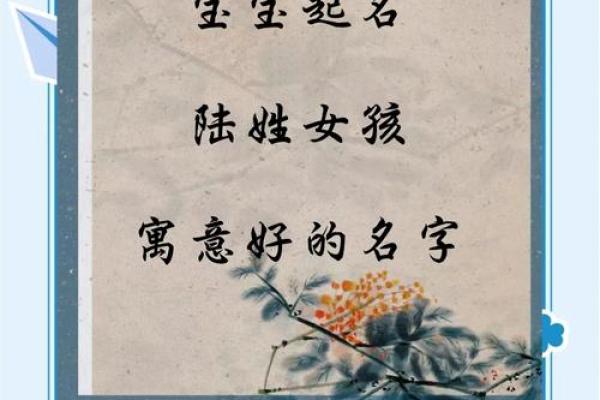 宝宝起名
陆姓女孩
寓意好的名字